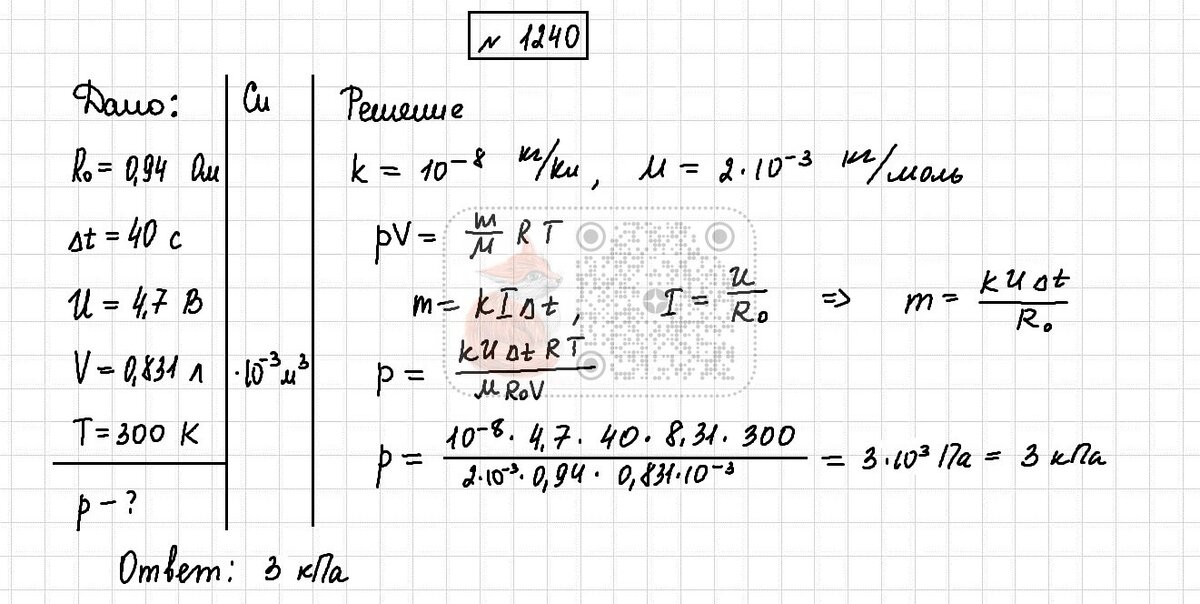 № 1240
Дано:
R₀ = 0,94 Ом
Δt = 40 с
U = 4,7 В
V = 0,831 л
T = 300 К
p – ?
Си
·10⁻³ м³
Решение
k = 10⁻⁸ кг/кл, M = 2·10⁻³ кг/моль
pV = m/M RT
m = kIΔt, I = U/R₀ => m = kUΔt/R₀
p = kUΔtRT/MR₀V
p = 10⁻⁸ · 4,7 · 40 · 8,31 · 300 / 2·10⁻³ · 0,94 · 0,831·10⁻³ = 3·10³ Па = 3 кПа
Ответ: 3 кПа